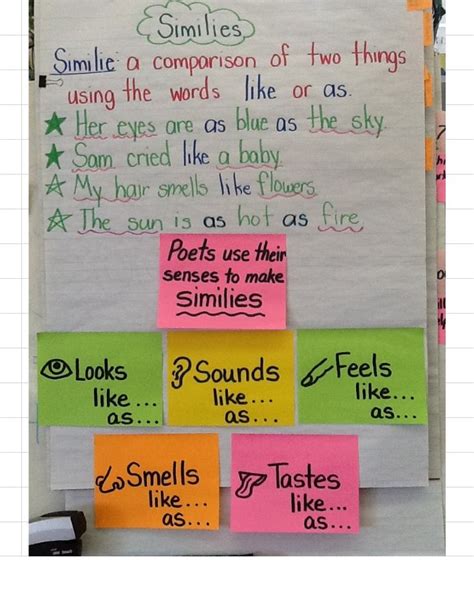 Similies
Similie: a comparison of two things
using the words like or as.
Her eyes are as blue as the sky.
Sam cried like a baby.
My hair smells like flowers.
The sun is as hot as fire.
Poets use their
senses to make
Similies
Looks
like...
as...
Sounds
like...
as...
Feels
like...
as...
Smells
like...
as...
Tastes
like...
as...